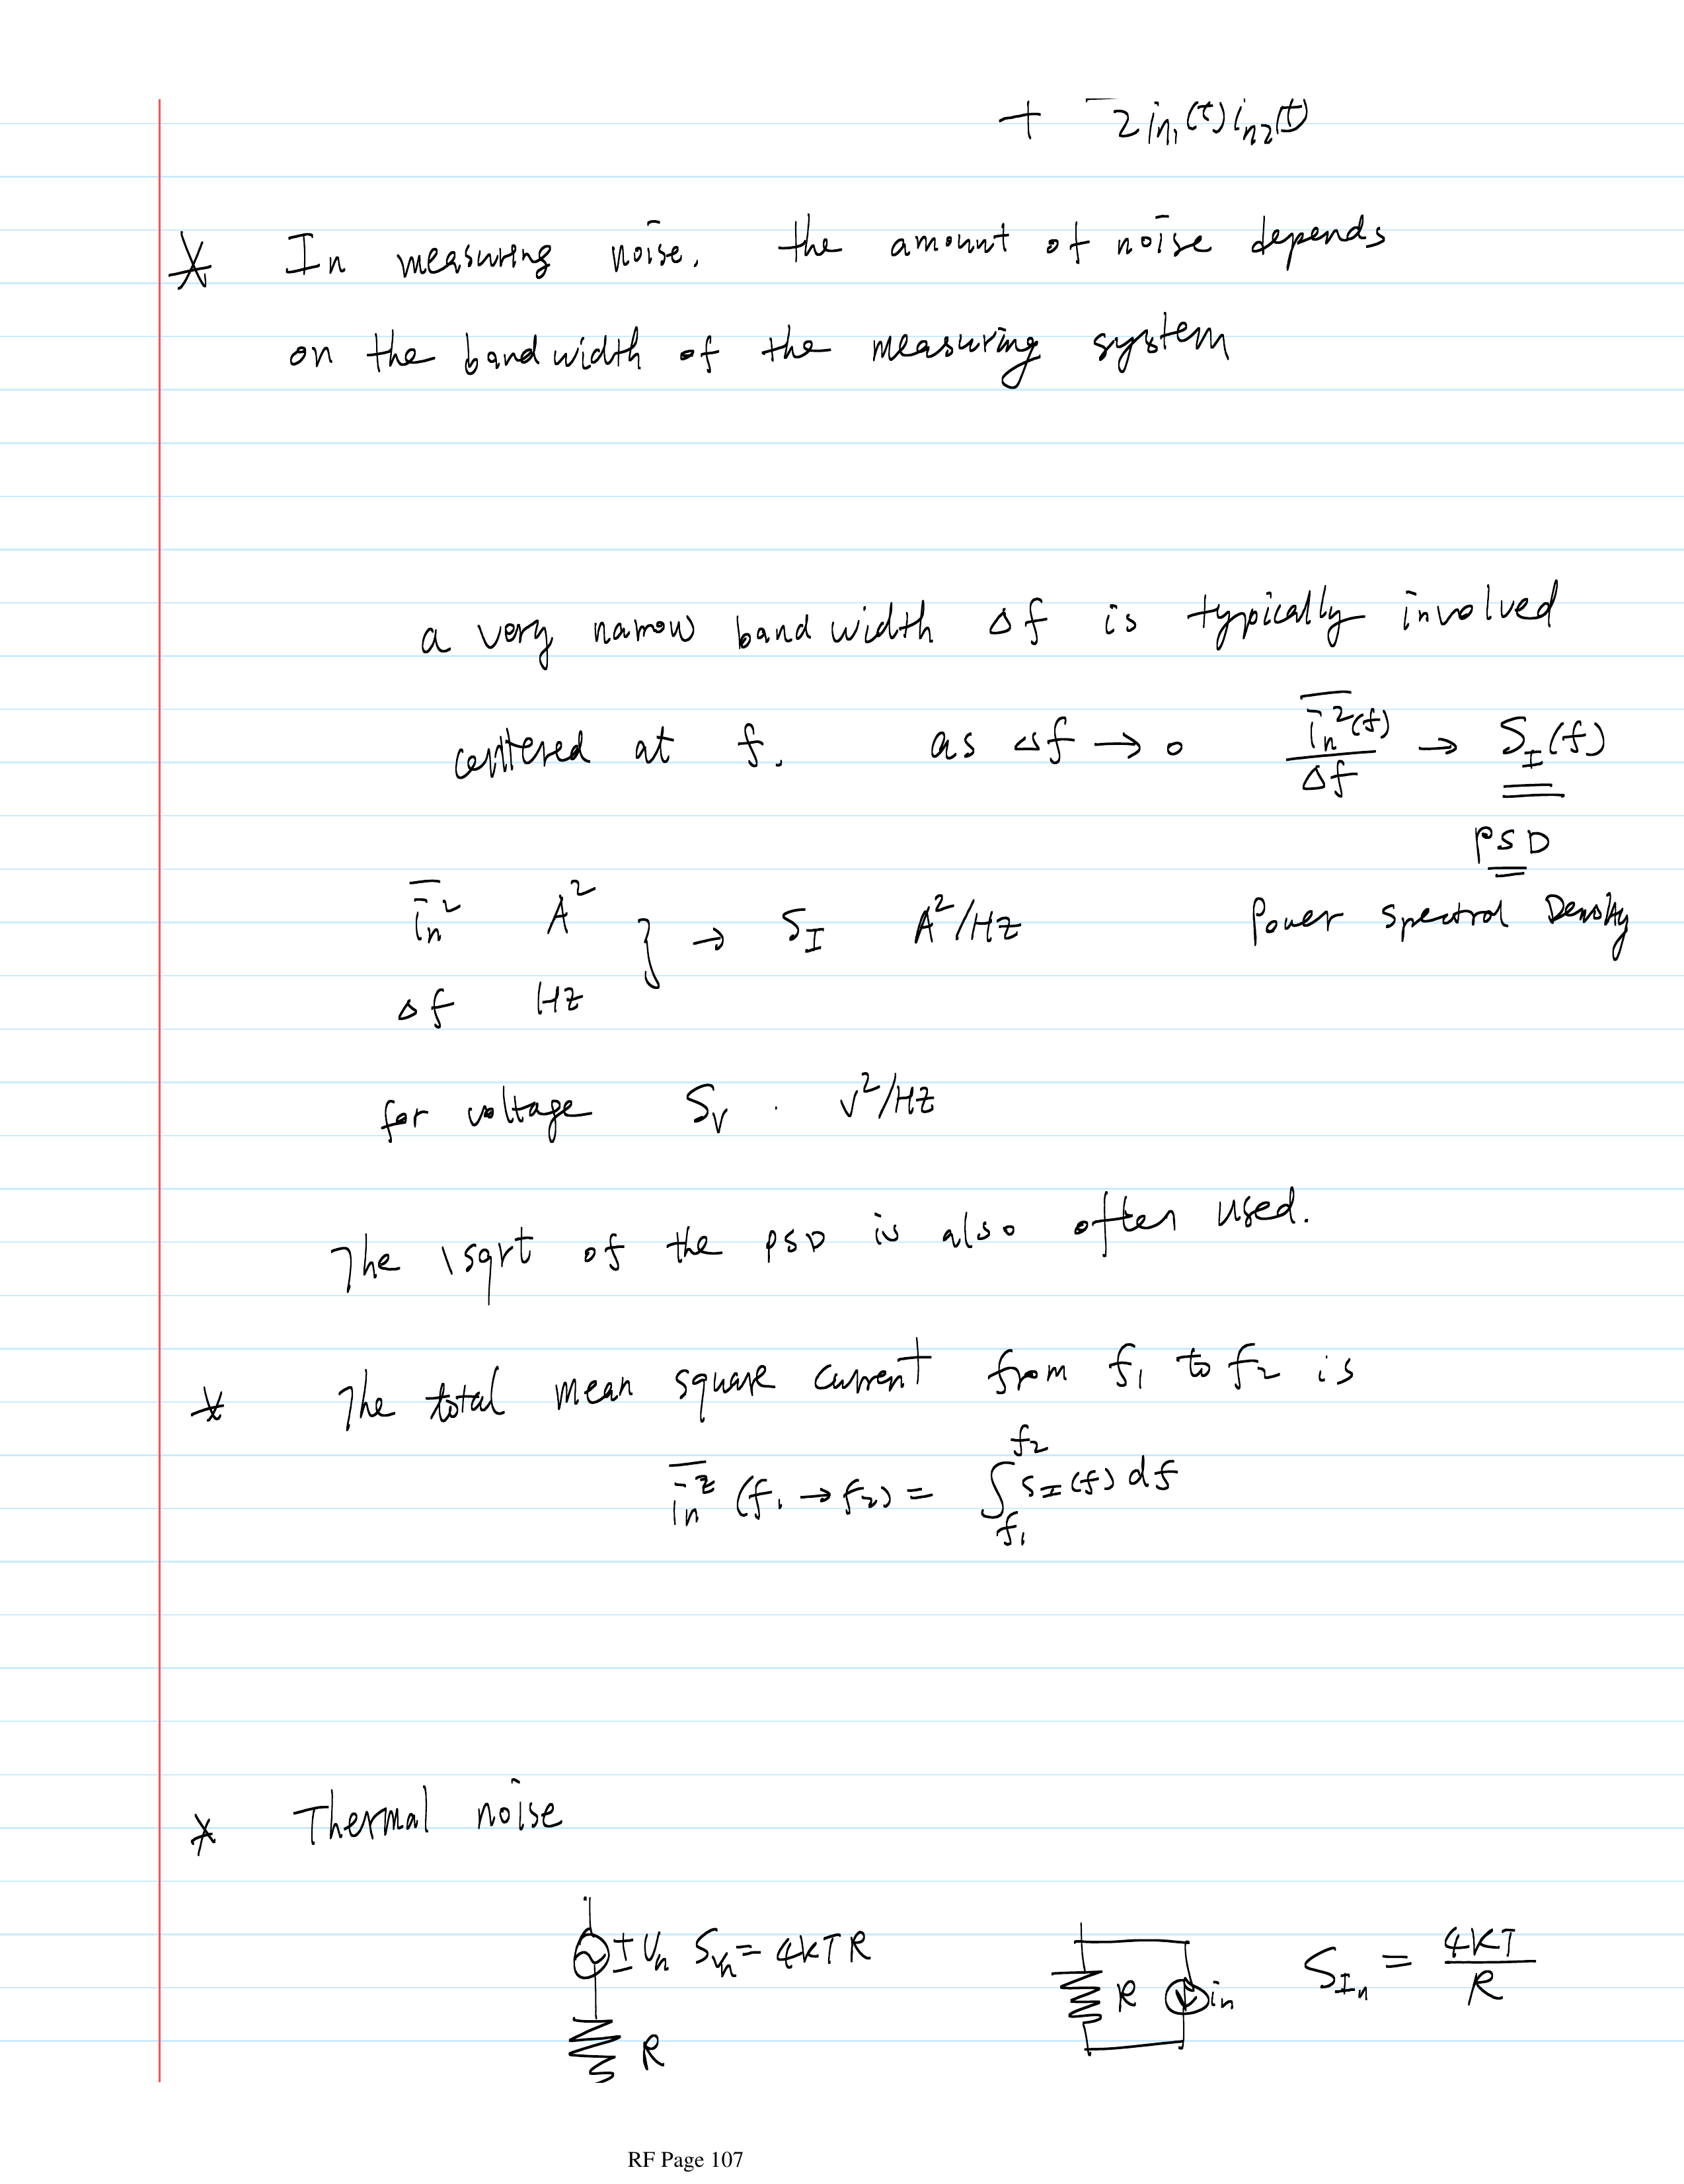 + 2 in1(t) in2(t)
* In measuring noise. the amount of noise depends
on the bandwidth of the measuring system
a very narrow bandwidth Δf is typically involved
centered at f. as Δf → 0 in²(f)/Δf → S_I(f)
PSD
in² A² } → S_I A²/Hz Power Spectral Density
Δf Hz
for voltage S_V . V²/Hz
The sqrt of the PSD is also often used.
* The total mean square current from f1 to f2 is
in² (f1 → f2) = ∫_f1^f2 S_I(f) df
* Thermal noise
± Vn S_Vn = 4KTR R in S_In = 4KT/R
R
RF Page 107